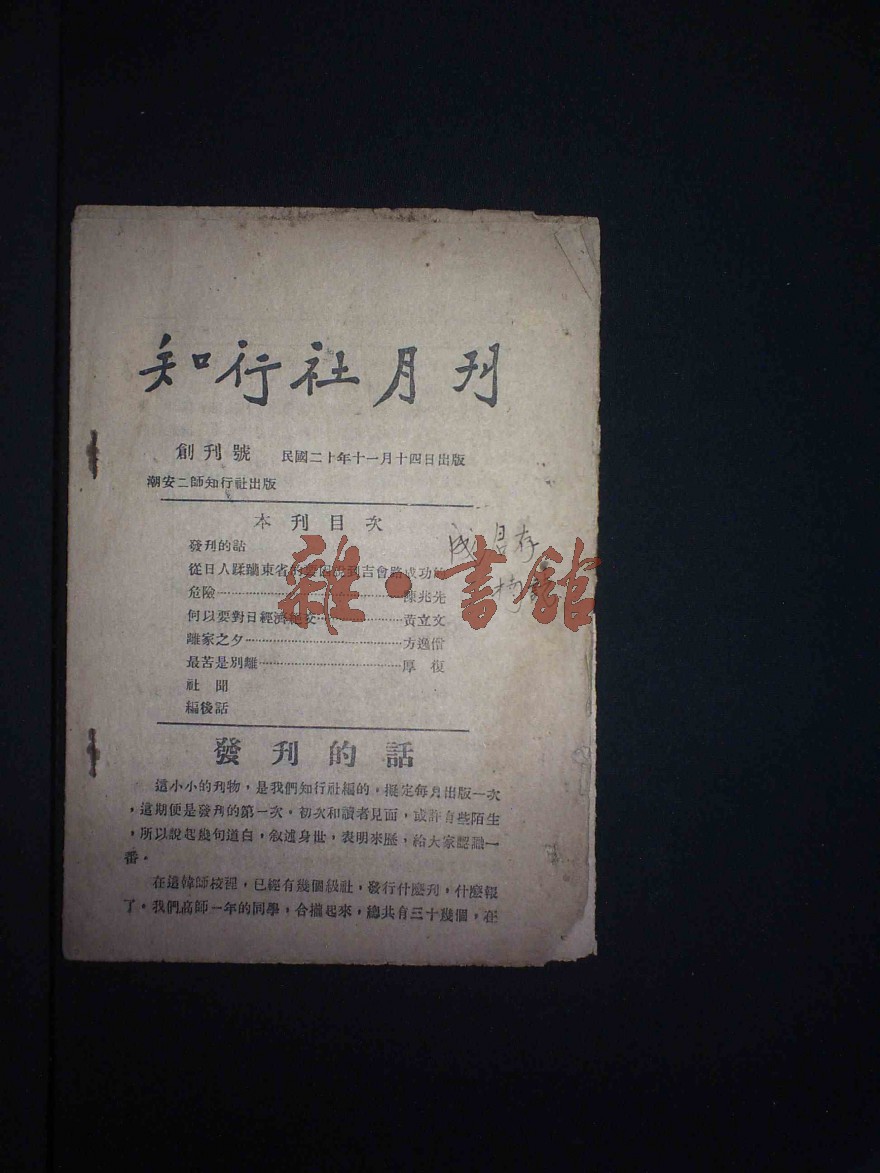 知行社月刊
創刊號 民國二十年十一月十四日出版
潮安二師知行社出版
本刊目次
發刊的話
從日人蹂躪東省的 說到吉會路成功的
危險……陳兆先
何以要對日經濟絕交……黃立文
離家之夕……方逸僧
最苦是別離……厚復
社聞
編後話
雜·書館
發刊的話
這小小的刊物，是我們知行社編的，擬定每月出版一次
，這期便是發刊的第一次，初次和讀者見面，或許有些陌生
，所以說起幾句道白，敘述身世，表明來歷，給大家認識一
番。
在這韓師校裡，已經有幾個級社，發行什麼刊，什麼報
了，我們高師一年的同學，合攏起來，總共有三十幾個，在